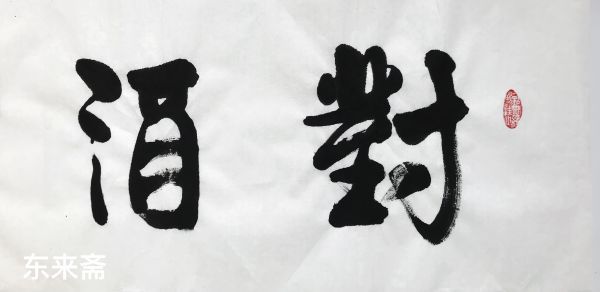 對酒
东来斋